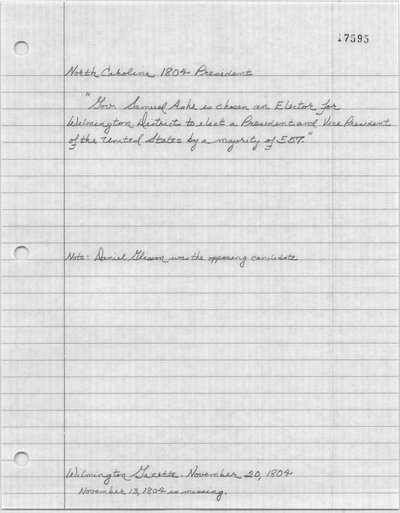 17595
North Caroline 1804 President
"Gov. Samuel Ashe is chosen an Elector for
Wilmington District to elect a President and Vice President
of the United States by a majority of 557."
Note: Daniel Glisson was the opposing candidate
Wilmington Gazette. November 20, 1804
November 13, 1804 is missing.